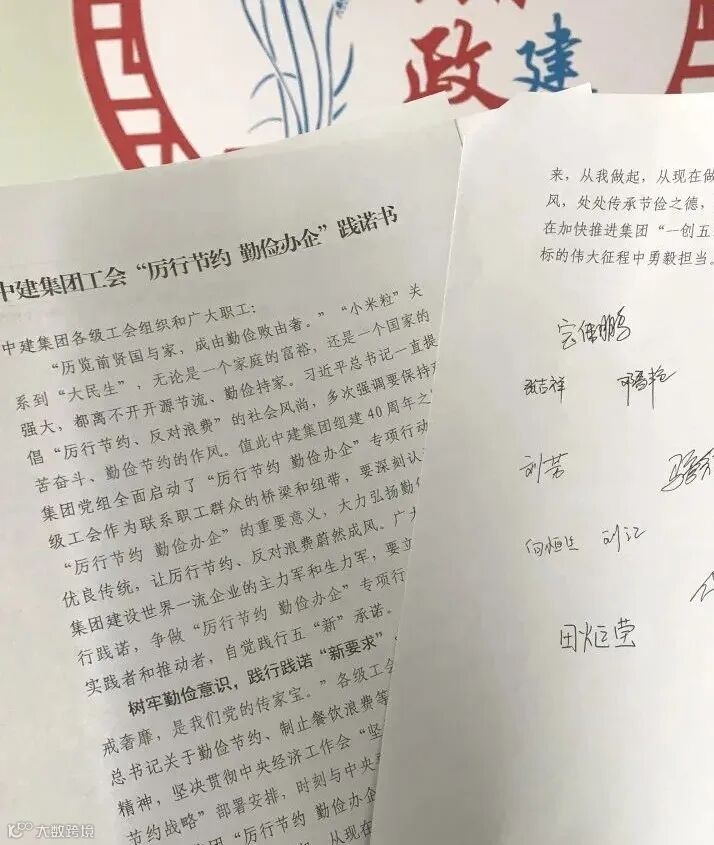 政建
中建集团工会“厉行节约 勤俭办企”践诺书
中建集团各级工会组织和广大职工：
“历览前贤国与家，成由勤俭败由奢。”“小米粒”关
系到“大民生”，无论是一个家庭的富裕，还是一个国家的
强大，都离不开开源节流、勤俭持家。习近平总书记一直提
倡“厉行节约、反对浪费”的社会风尚，多次强调要保持
苦奋斗、勤俭节约的作风。值此中建集团组建40周年之
集团党组全面启动了“厉行节约 勤俭办企”专项行动
级工会作为联系职工群众的桥梁和纽带，要深刻认
“厉行节约 勤俭办企”的重要意义，大力弘扬勤俭
优良传统，让厉行节约、反对浪费蔚然成风。广大
集团建设世界一流企业的主力军和生力军，要立
行践诺，争做“厉行节约 勤俭办企”专项行
实践者和推动者，自觉践行五“新”承诺。
树牢勤俭意识，践行践诺“新要求”
戒奢靡，是我们党的传家宝。”各级工会
总书记关于勤俭节约、制止餐饮浪费等
精神，坚决贯彻中央经济工作会“坚
节约战略”部署安排，时刻与中央
集团“厉行节约 勤俭办企
从现在
来，从我做起，从现在做
风，处处传承节俭之德，
在加快推进集团“一创五
标的伟大征程中勇毅担当。
张吉祥
刘芳
向恒 刘江
田炬荣
大数跨境